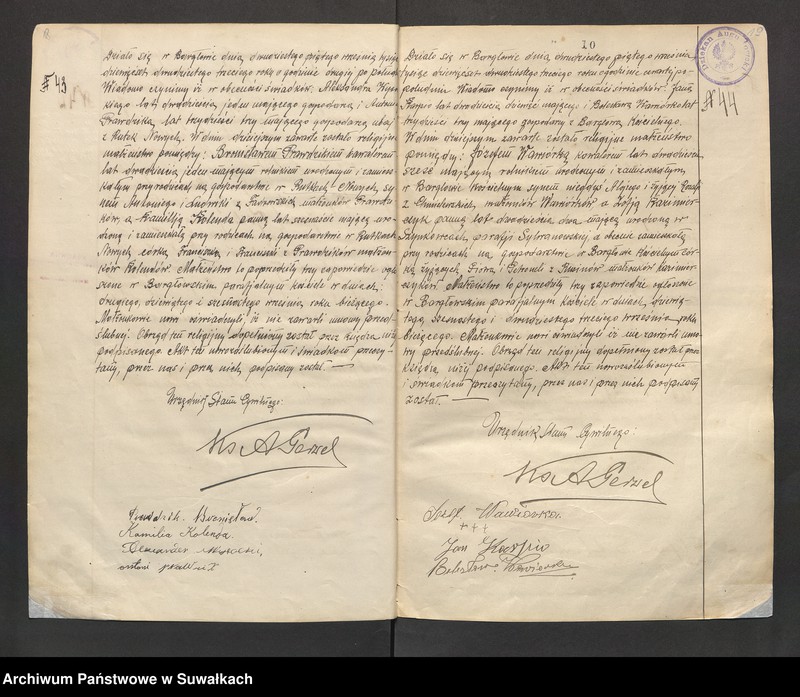 № 43
Działo się w Bargłowie dnia dwudziestego piątego września tysiąc
dziewięćset dwudziestego trzeciego roku o godzinie drugiej po południu
Wiadomo czynimy iż w obecności świadków: Aleksandra
lat dwadzieścia jeden mającego gospodarza i Antoniego
Prawdzika lat trzydzieści trzy mającego gospodarza, obaj
z Rutek Nowych. W dniu dzisiejszym zawarte zostało religijne
małżeństwo pomiędzy: Bronisławem Prawdzikiem kawalerem
lat dwadzieścia jeden mającym rolnikiem urodzonym i zamiesz-
kałym przy rodzicach na gospodarstwie w Rutkach Nowych, sy-
nem Antoniego i Ludwiki z małżonków Prawdzi-
ków, a Kamilją Kolenda panną lat szesnaście mającą uro-
dzoną i zamieszkałą przy rodzicach na gospodarstwie w Rutkach
Nowych córką Franciszka i z Prawdzików małżon-
ków Kolendów. Małżeństwo to poprzedziły trzy zapowiedzie ogło-
szone w Bargłowskim parafjalnym kościele w dniach:
drugiego, dziewiątego i szesnastego września roku bieżącego.
Małżonkowie nowi oświadczyli, iż nie zawarli umowy przed-
ślubnej. Obrząd ten religijny dopełniony został przez księdza niżej
podpisanego. Akt ten nowozaślubionym i świadkom przeczy-
tany, przez nas i przez nich, podpisany został. —
Urzędnik Stanu Cywilnego:
Ks A Gerwel
Prawdzik. Bronisław.
Kamilia Kolenda
10
Dziekan
№ 44
Działo się w Bargłowie dnia dwudziestego piątego września
tysiąc dziewięćset dwudziestego trzeciego roku o godzinie czwartej po
południu Wiadomo czynimy iż w obecności świadków: Jana
Karpio lat dwadzieścia dziewięć mającego i Bolesława Wawiórko lat
trzydzieści trzy mającego gospodarzy z Bargłowa Kościelnego.
W dniu dzisiejszym zawarte zostało religijne małżeństwo
pomiędzy: Józefem Wawiórką kawalerem lat dwadzieścia
sześć mającym rolnikiem urodzonym i zamieszkałym,
w Bargłowie Kościelnym synem niegdyś i żyjącej
z małżonków Wawiórków a Zofją Kazimier-
czyk panną lat dwadzieścia dwa mającą urodzoną w
Szynkowcach, parafji a obecnie zamieszkałą
przy rodzicach na gospodarstwie w Bargłowie Kościelnym cór-
ką żyjących Piotra i Petroneli z małżonków Kazimier-
czyków. Małżeństwo to poprzedziły trzy zapowiedzie ogłoszone
w Bargłowskim parafjalnym kościele w dniach, dziewią-
tego, szesnastego i dwudziestego trzeciego września roku
bieżącego. Małżonkowie nowi oświadczyli iż nie zawarli umo-
wy przedślubnej. Obrząd ten religijny dopełniony został przez
księdza niżej podpisanego. Akt ten nowozaślubionym
i świadkom przeczytany, przez nas i przez nich podpisany
został. —
Urzędnik Stanu Cywilnego:
Ks A Gerwel
Józef. Wawiórka.
+ + +
Jan Karpio
Bolesław
Archiwum Państwowe w Suwałkach